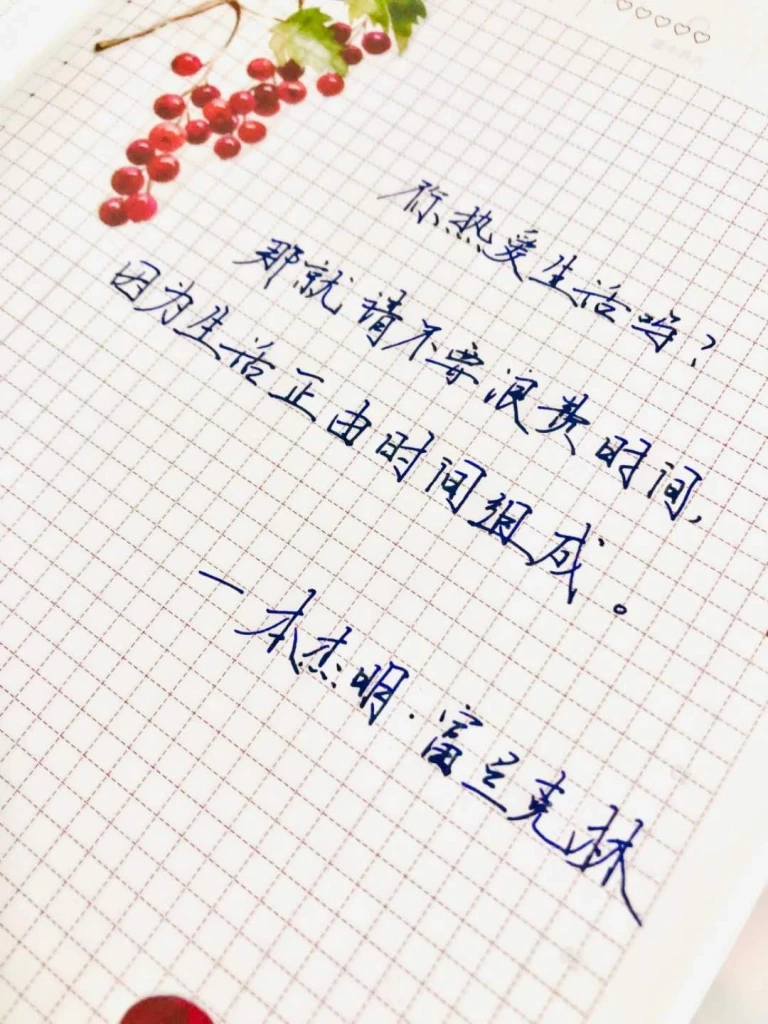 你热爱生活吗?
那就请不要浪费时间,
因为生活正由时间组成。
—本杰明·富兰克林